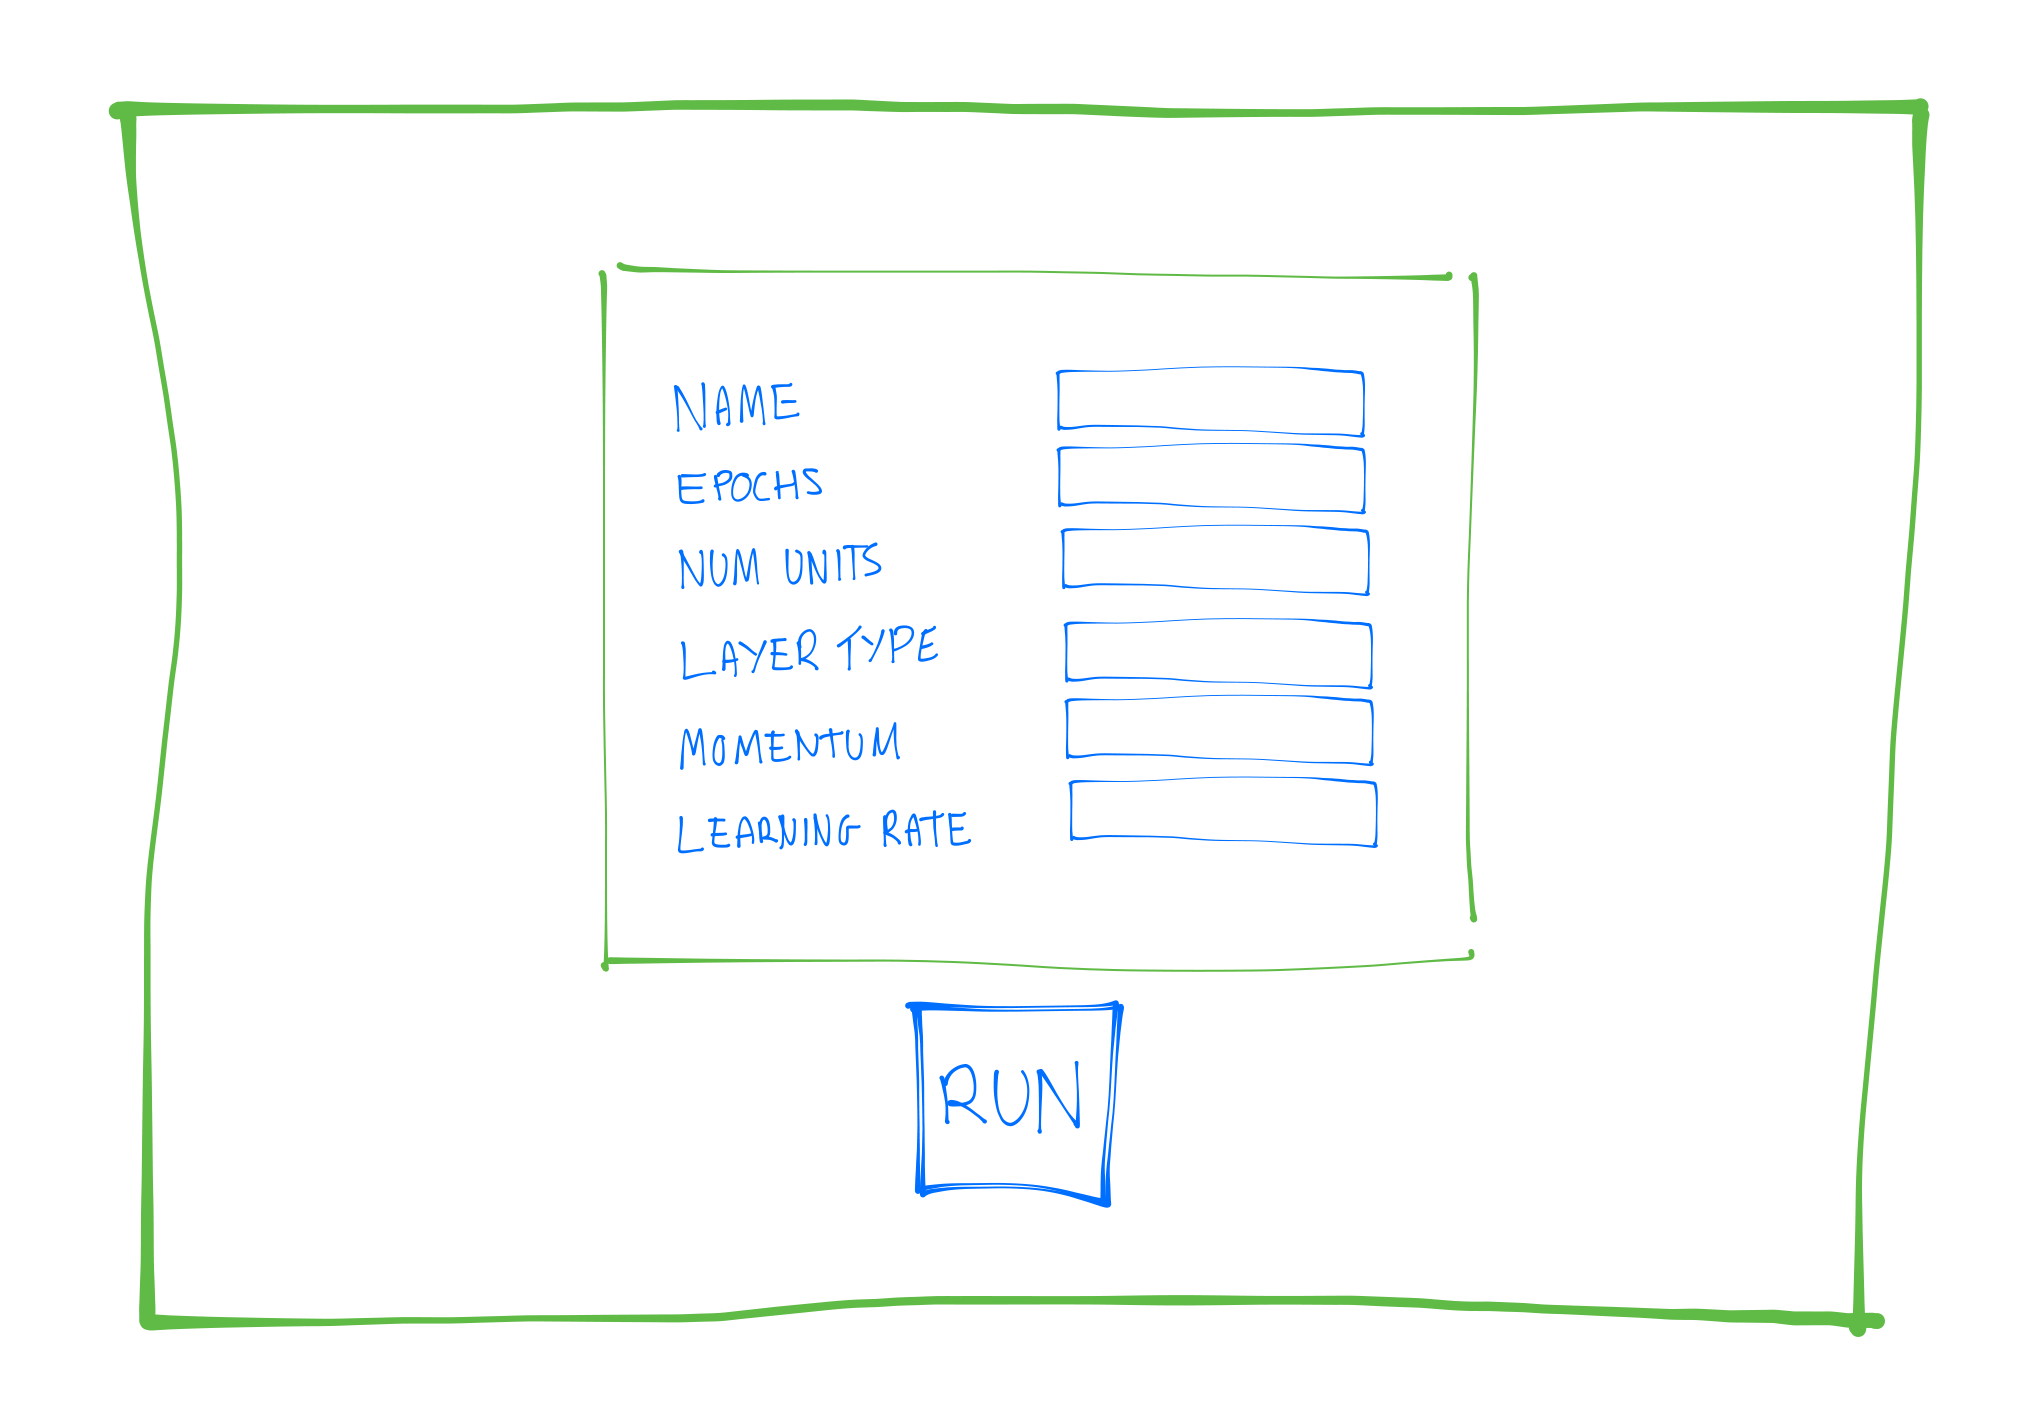 NAME
EPOCHS
NUM UNITS
LAYER TYPE
MOMENTUM
LEARNING RATE
RUN